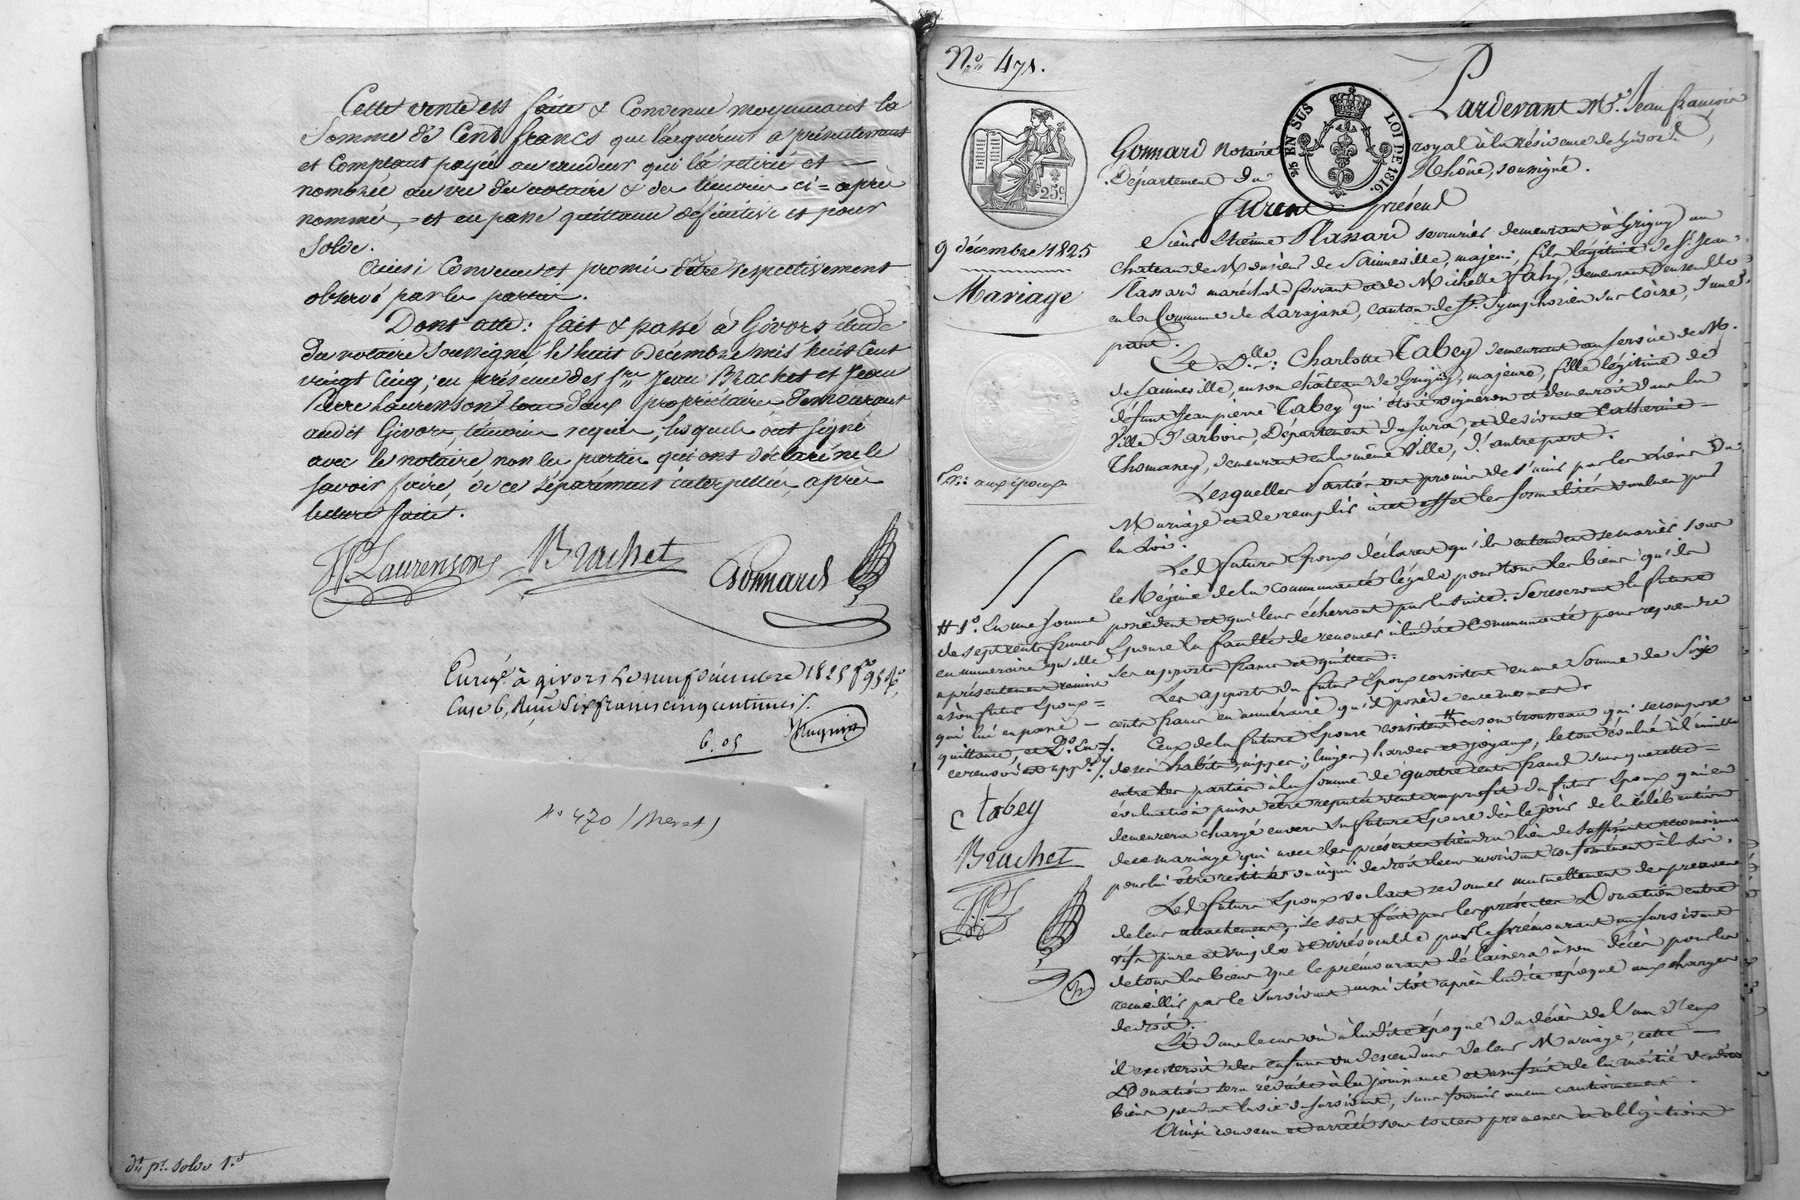 Cette vente est faite & Convenue moyennant la
Somme de Cent francs que l'acquéreur a présentement
et Comptant payée au vendeur qui l'a retirée et —
nombrée au vu du notaire & des témoins ci = après
nommés, et en passe quittance définitive et pour
Solde.
Ainsi Convenu et promis d'être respectivement
observé par les parties.
Dont acte: fait & passé à Givors étude
du notaire soussigné le huit Décembre mil huit Cent
vingt Cinq; en présence des Srs Jean Brachet et Jean
Pierre Laurenson tous deux propriétaires demeurant
audit Givors, témoins requis, lesquels ont signé
avec le notaire non les parties qui ont déclaré ne le
savoir faire, de ce séparément interpellées, après
lecture faite.
JP Laurenson Brachet Gonnard
Enreg. à givors le neuf décembre 1825 fo 95 Ro
Case 6, Reçu Six francs cinq centimes.
6.05
No 470 /
dt pr. solde 1.d
No 471.
25 c.
¼ EN SUS LOI DE 1816.
9 décembre 1825
Mariage
aux époux
Pardevant Me Jean françois
Gonnard Notaire royal à la résidence de Givors,
Département du Rhône, soussigné.
Furent présent
Sieur Etienne Plasard serrurier demeurant à Grigny au
château de Monsieur de Sainneville, majeur, fils légitime de Sr Jean
Plasard maréchal ferrant et de Michelle Faby, demeurant ensemble
en la Commune de Larajane, canton de St Symphorien sur Coise, d'une
part.
Et Dlle Charlotte Tabey demeurant au service de M.
de Sainneville, en son château de Grigny, majeure, fille légitime de
défunt Jean pierre Tabey qui étoit vigneron et demeuroit dans la
Ville d'arbois, Département du Jura, et de vivante Catherine —
Thomaney, demeurant en la même Ville, d'autre part.
Lesquelles Parties ont promis de s'unir par les liens du
Mariage et de remplir à cet effet les formalités voulues par
la Loi.
Les futurs Epoux déclarent qu'ils entendent se marier sous
le Régime de la communauté légale pour tous les biens qu'ils
possèdent et qui leur écherront par la suite. Se reservant la future
Epouse la faculté de renoncer à ladite Communauté pour reprendre
ses apports francs et quittes.
Les apports du futur Epoux consistent en une Somme de Six
cents francs en numéraire qu'il possède en ce moment.
Ceux de la future Epouse consistent # en son trousseau qui se compose
de ses habits, nippes, linges, hardes et joyaux, le tout évalué à l'amiable
entre les parties à la somme de quatre cents francs sans que cette =
évaluation puisse être réputée vente au profit du futur Epoux qui en
demeurera chargé envers sa future Epouse dès le jour de la célébration
de ce mariage qui avec les présentes tiendra lieu de suffisante reconnaissance
pour lui être restitués ou à qui de droit le cas arrivant conformément à la loi.
Les futurs Epoux voulant se donner mutuellement des preuves
de leur attachement, se sont fait par les présentes Donation entre
vifs pure et simple et irrévocable par le prémourant au survivant
de tous les biens que le prémourant délaissera à son décès pour les
recueillir par le survivant aussitôt après ladite époque aux charges
de droit.
Et dans le cas où à ladite époque du décès de l'un d'eux
il existeroit des enfans ou descendans de leur Mariage, cette —
Donation sera réduite à la jouissance et usufruit de la moitié desdits
biens pendant la vie du survivant, sans fournir aucun cautionnement.
Ainsi convenu et arrêté sous toutes promesses et obligations
# 1o. En une somme
de sept cents francs
en numéraire qu'elle
a présentement remise
à son futur Epoux =
qui lui en passe —
quittance, et 2o. En
ce renvoi est app.
C Tabey
Brachet
JPL